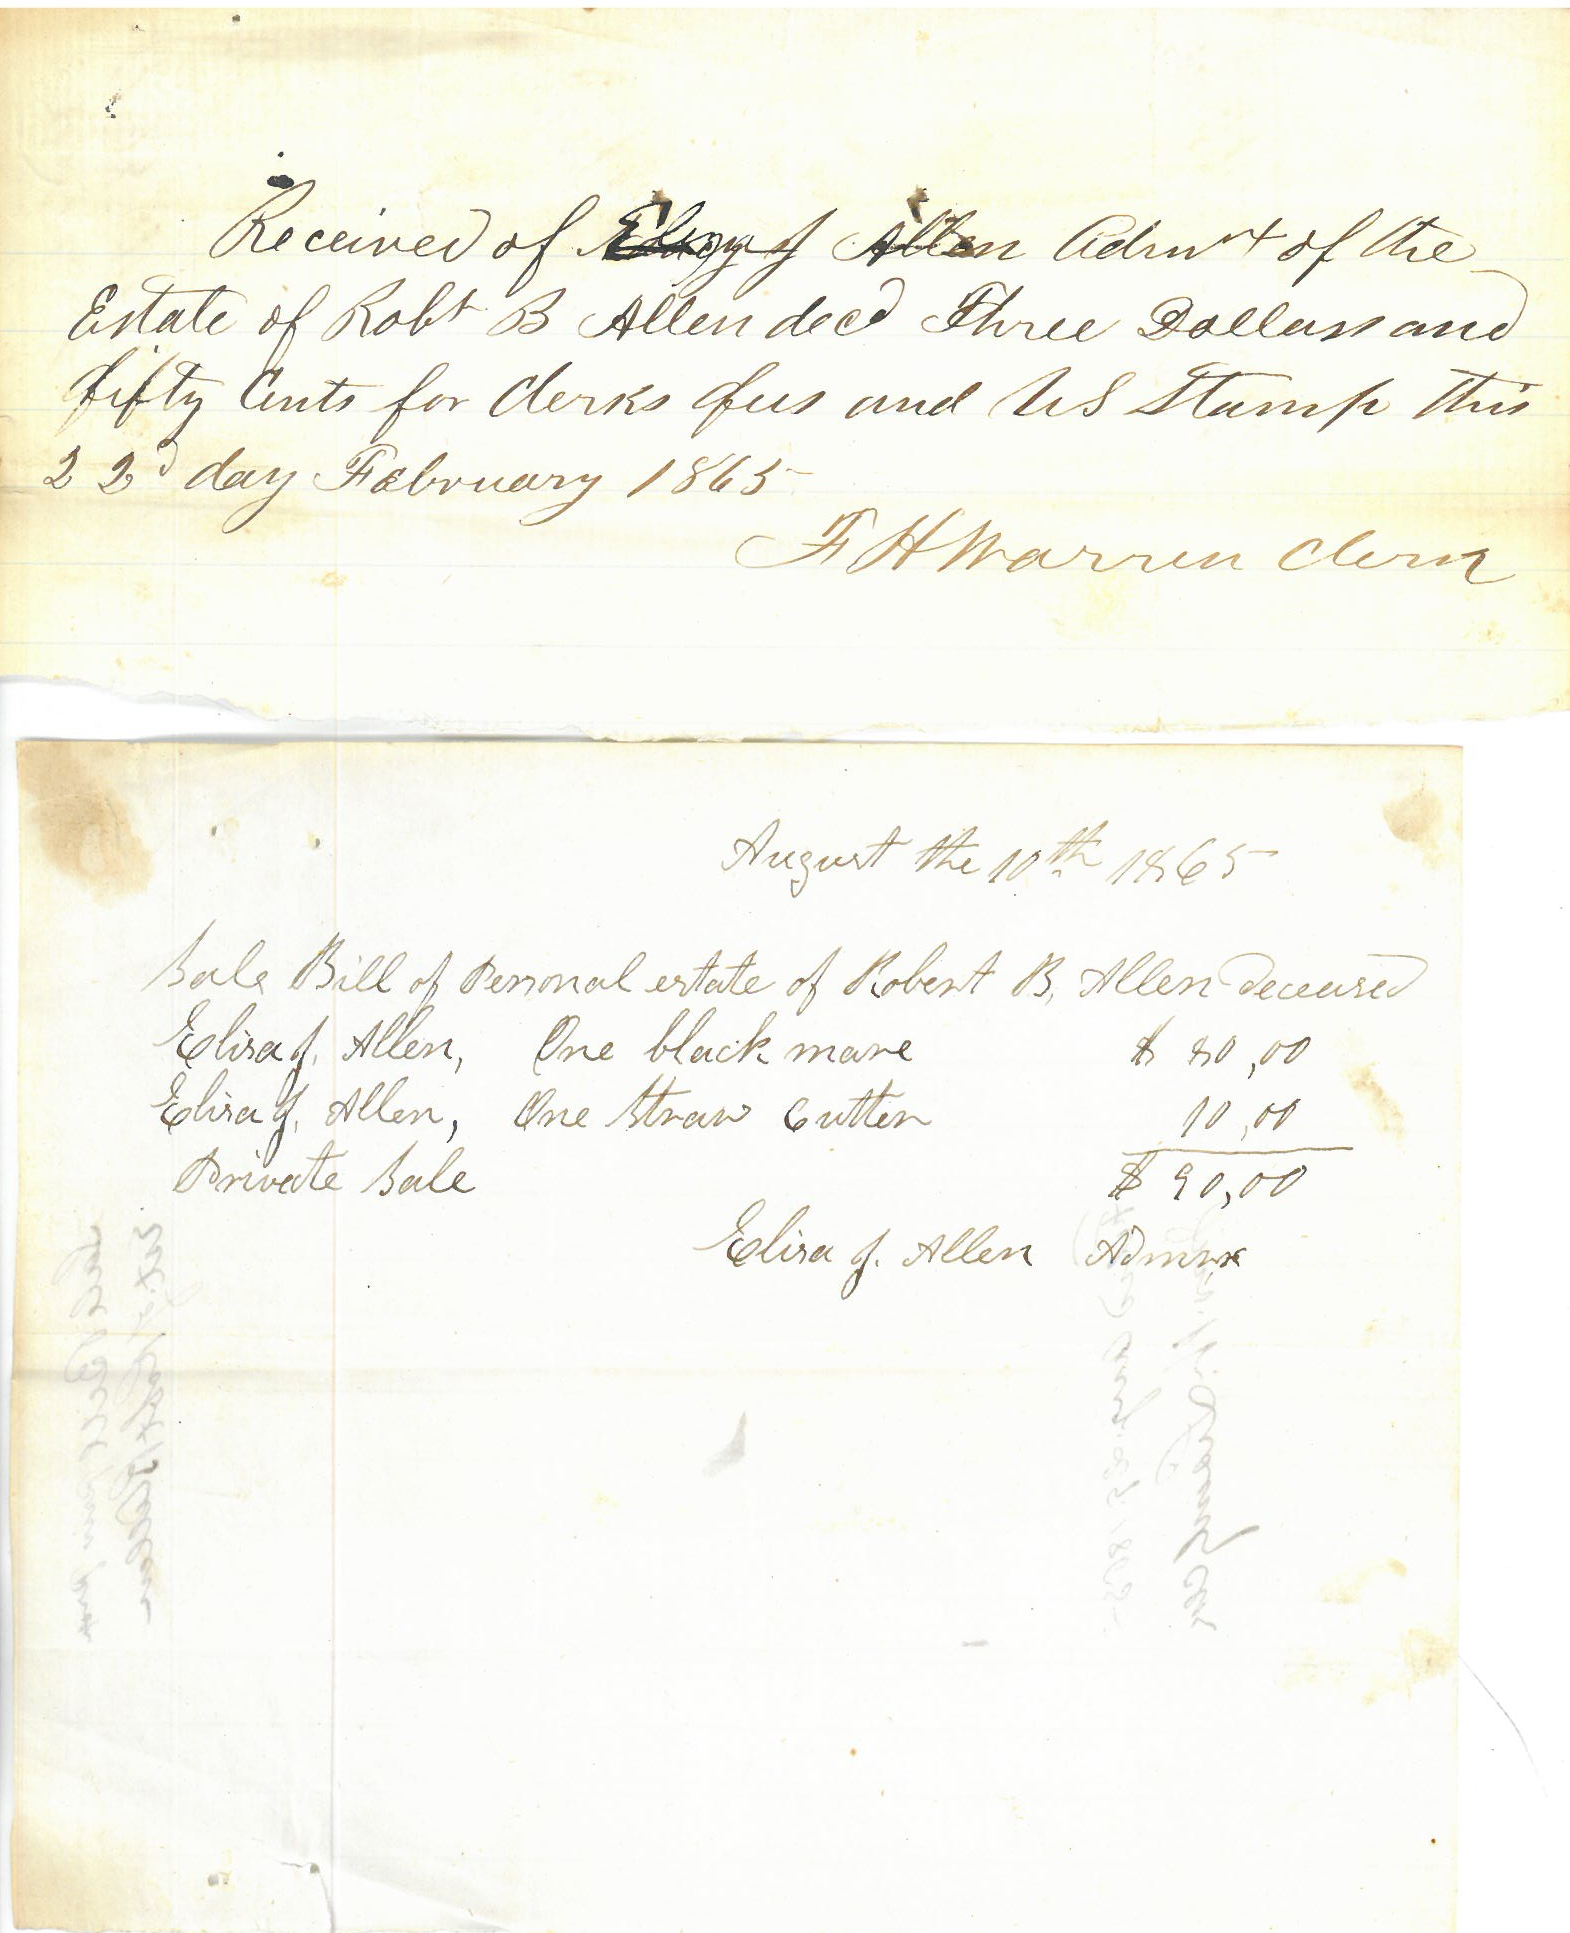 Received of Eliza J Allen Admrx of the
Estate of Robt B Allen decd Three Dollars and
fifty Cents for Clerks fees and US Stamp this
22d day February 1865
F H Warren Clerk
August the 10th 1865
Sale Bill of Personal estate of Robert B, Allen deceased
Elisa J. Allen, One black mare $ 80,00
Elisa J. Allen, One Straw Cutter 10,00
Private Sale $ 90,00
Elisa J. Allen Admrx